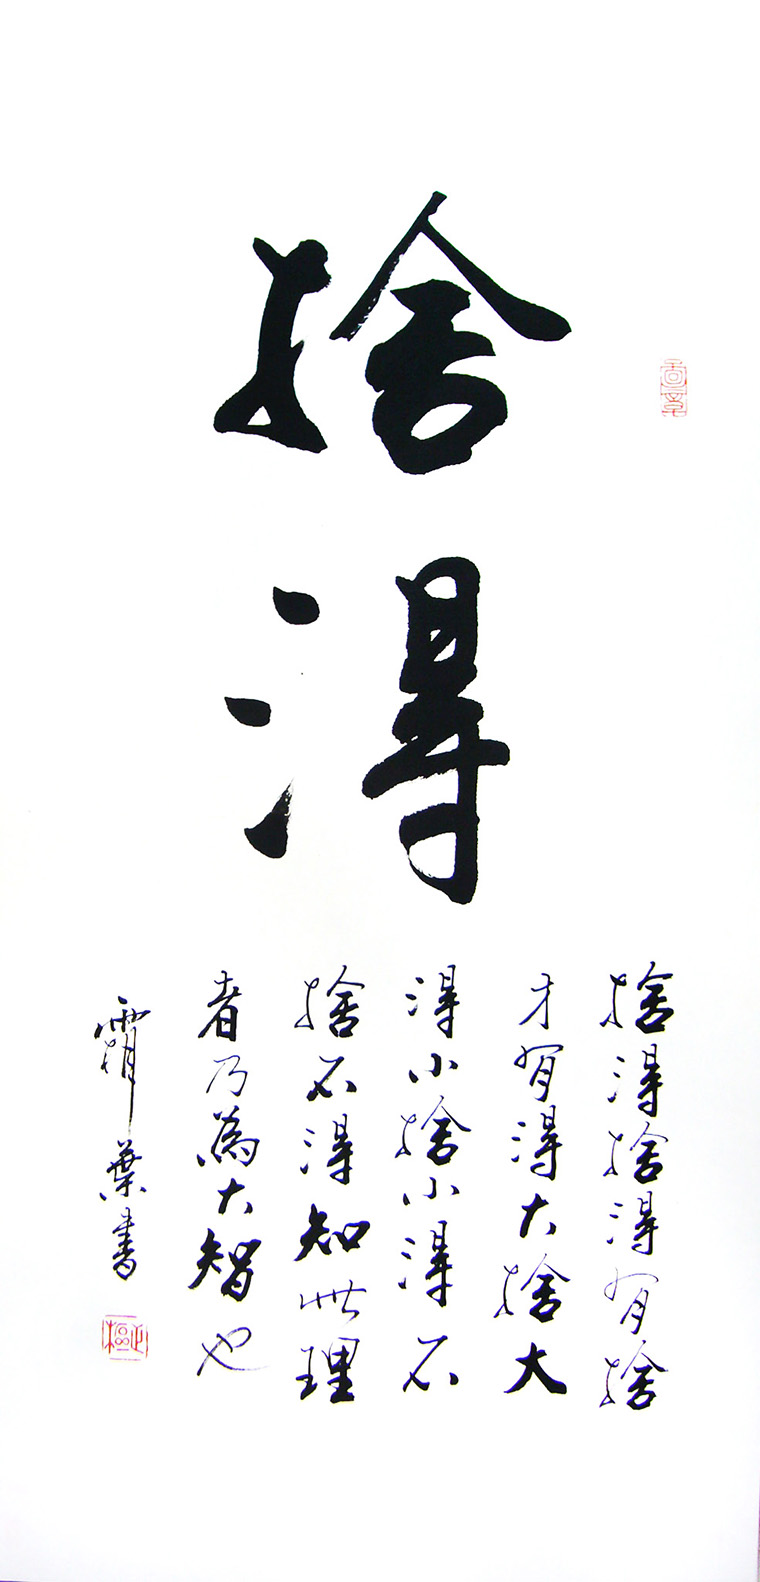 捨
得
捨得捨得有捨
才有得大捨大
得小捨小得不
捨不得知此理
者乃為大智也
霜葉書